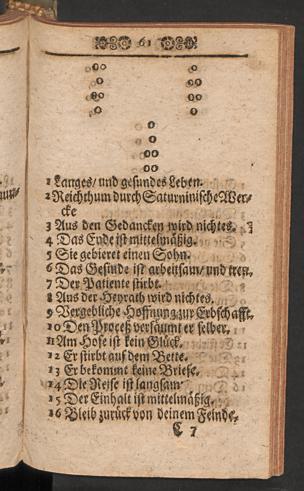 61
1 Langes/ und gesundes Leben.
2 Reichthum durch Saturninische Wer-
cke
3 Aus den Gedancken wird nichtes.
4 Das Ende ist mittelmäßig.
5 Sie gebieret einen Sohn.
6 Das Gesinde ist arbeitsam/ und treu.
7 Der Patiente stirbt.
8 Aus der Heyrath wird nichtes.
9 Vergebliche Hoffnung zur Erbschafft.
10 Den Proceß versäumt er selber.
11 Am Hofe ist kein Glück.
12 Er stirbt auf dem Bette.
13 Er bekommt keine Briefe.
14 Die Reise ist langsam
15 Der Einhalt ist mittelmäßig.
16 Bleib zurück von deinem Feinde.
C 7